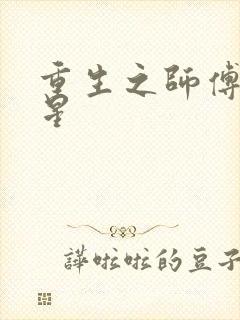 重生之師傅
星
譁啦啦的豆子